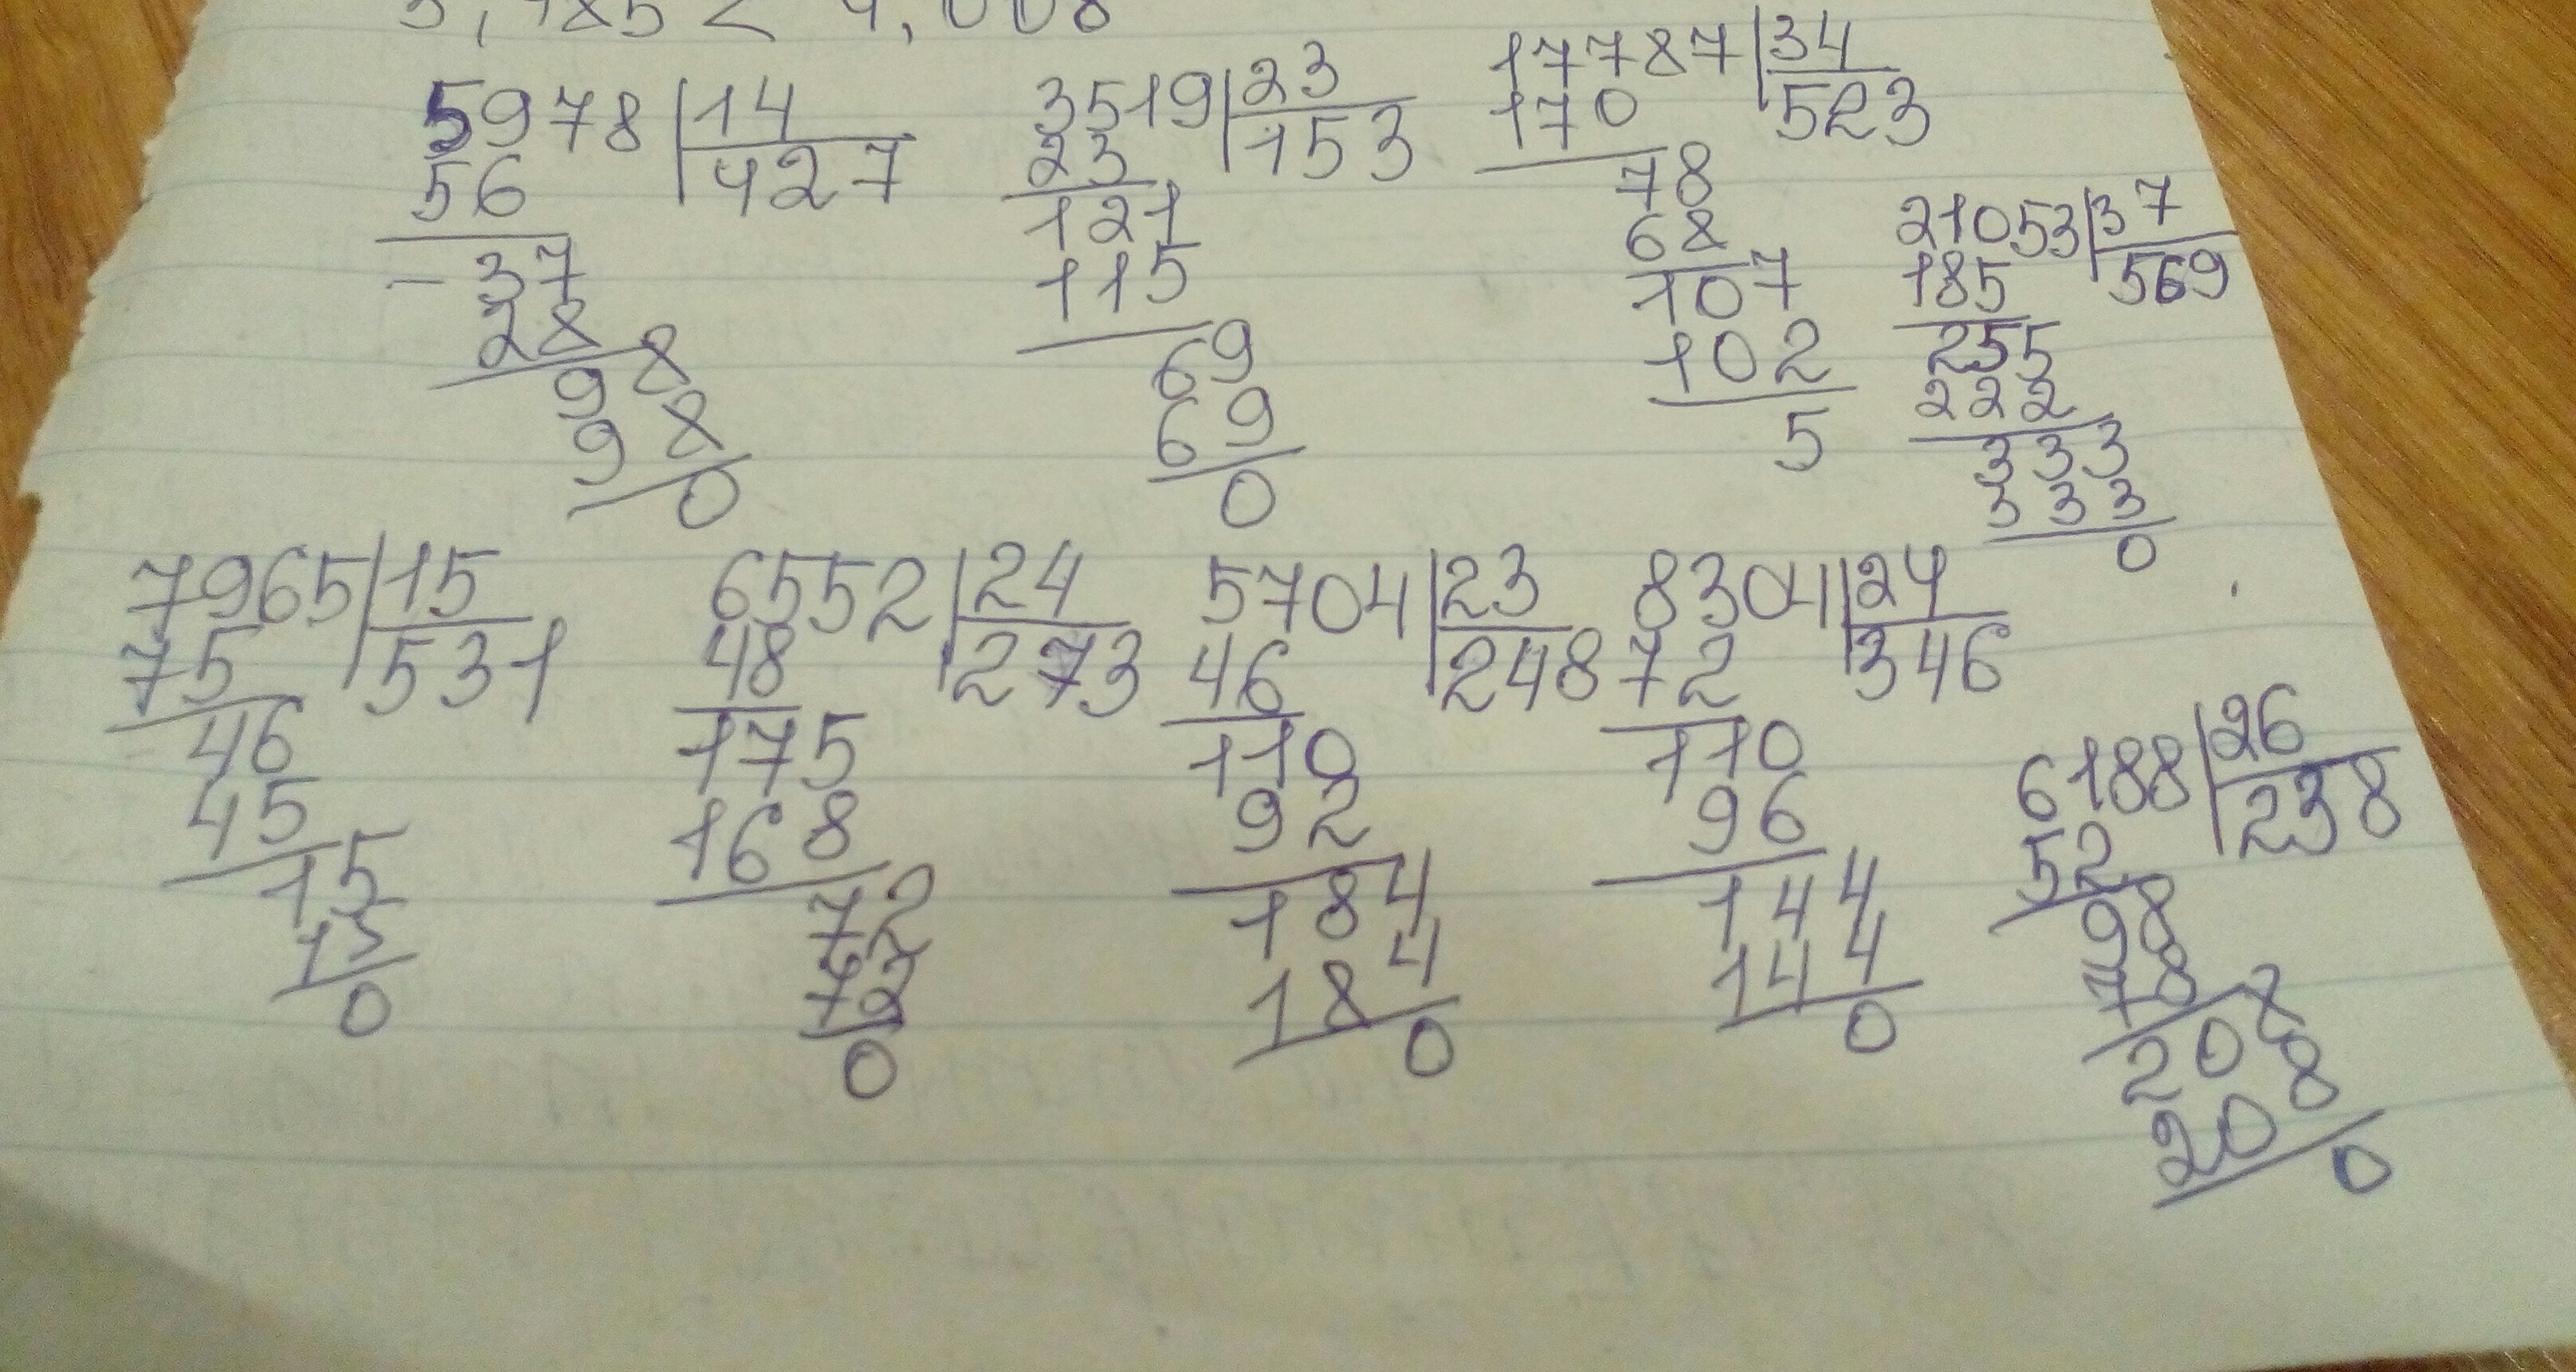 5978 | 14
56 427
- 37
28
98
98
0
3519 | 23
23 153
121
115
69
69
0
17787 | 34
170 523
78
68
107
102
5
21053 | 37
185 569
255
222
333
333
0
7965 | 15
75 531
46
45
15
15
0
6552 | 24
48 273
175
168
72
72
0
5704 | 23
46 248
110
92
184
184
0
8304 | 24
72 346
110
96
144
144
0
6188 | 26
52 238
98
78
208
208
0